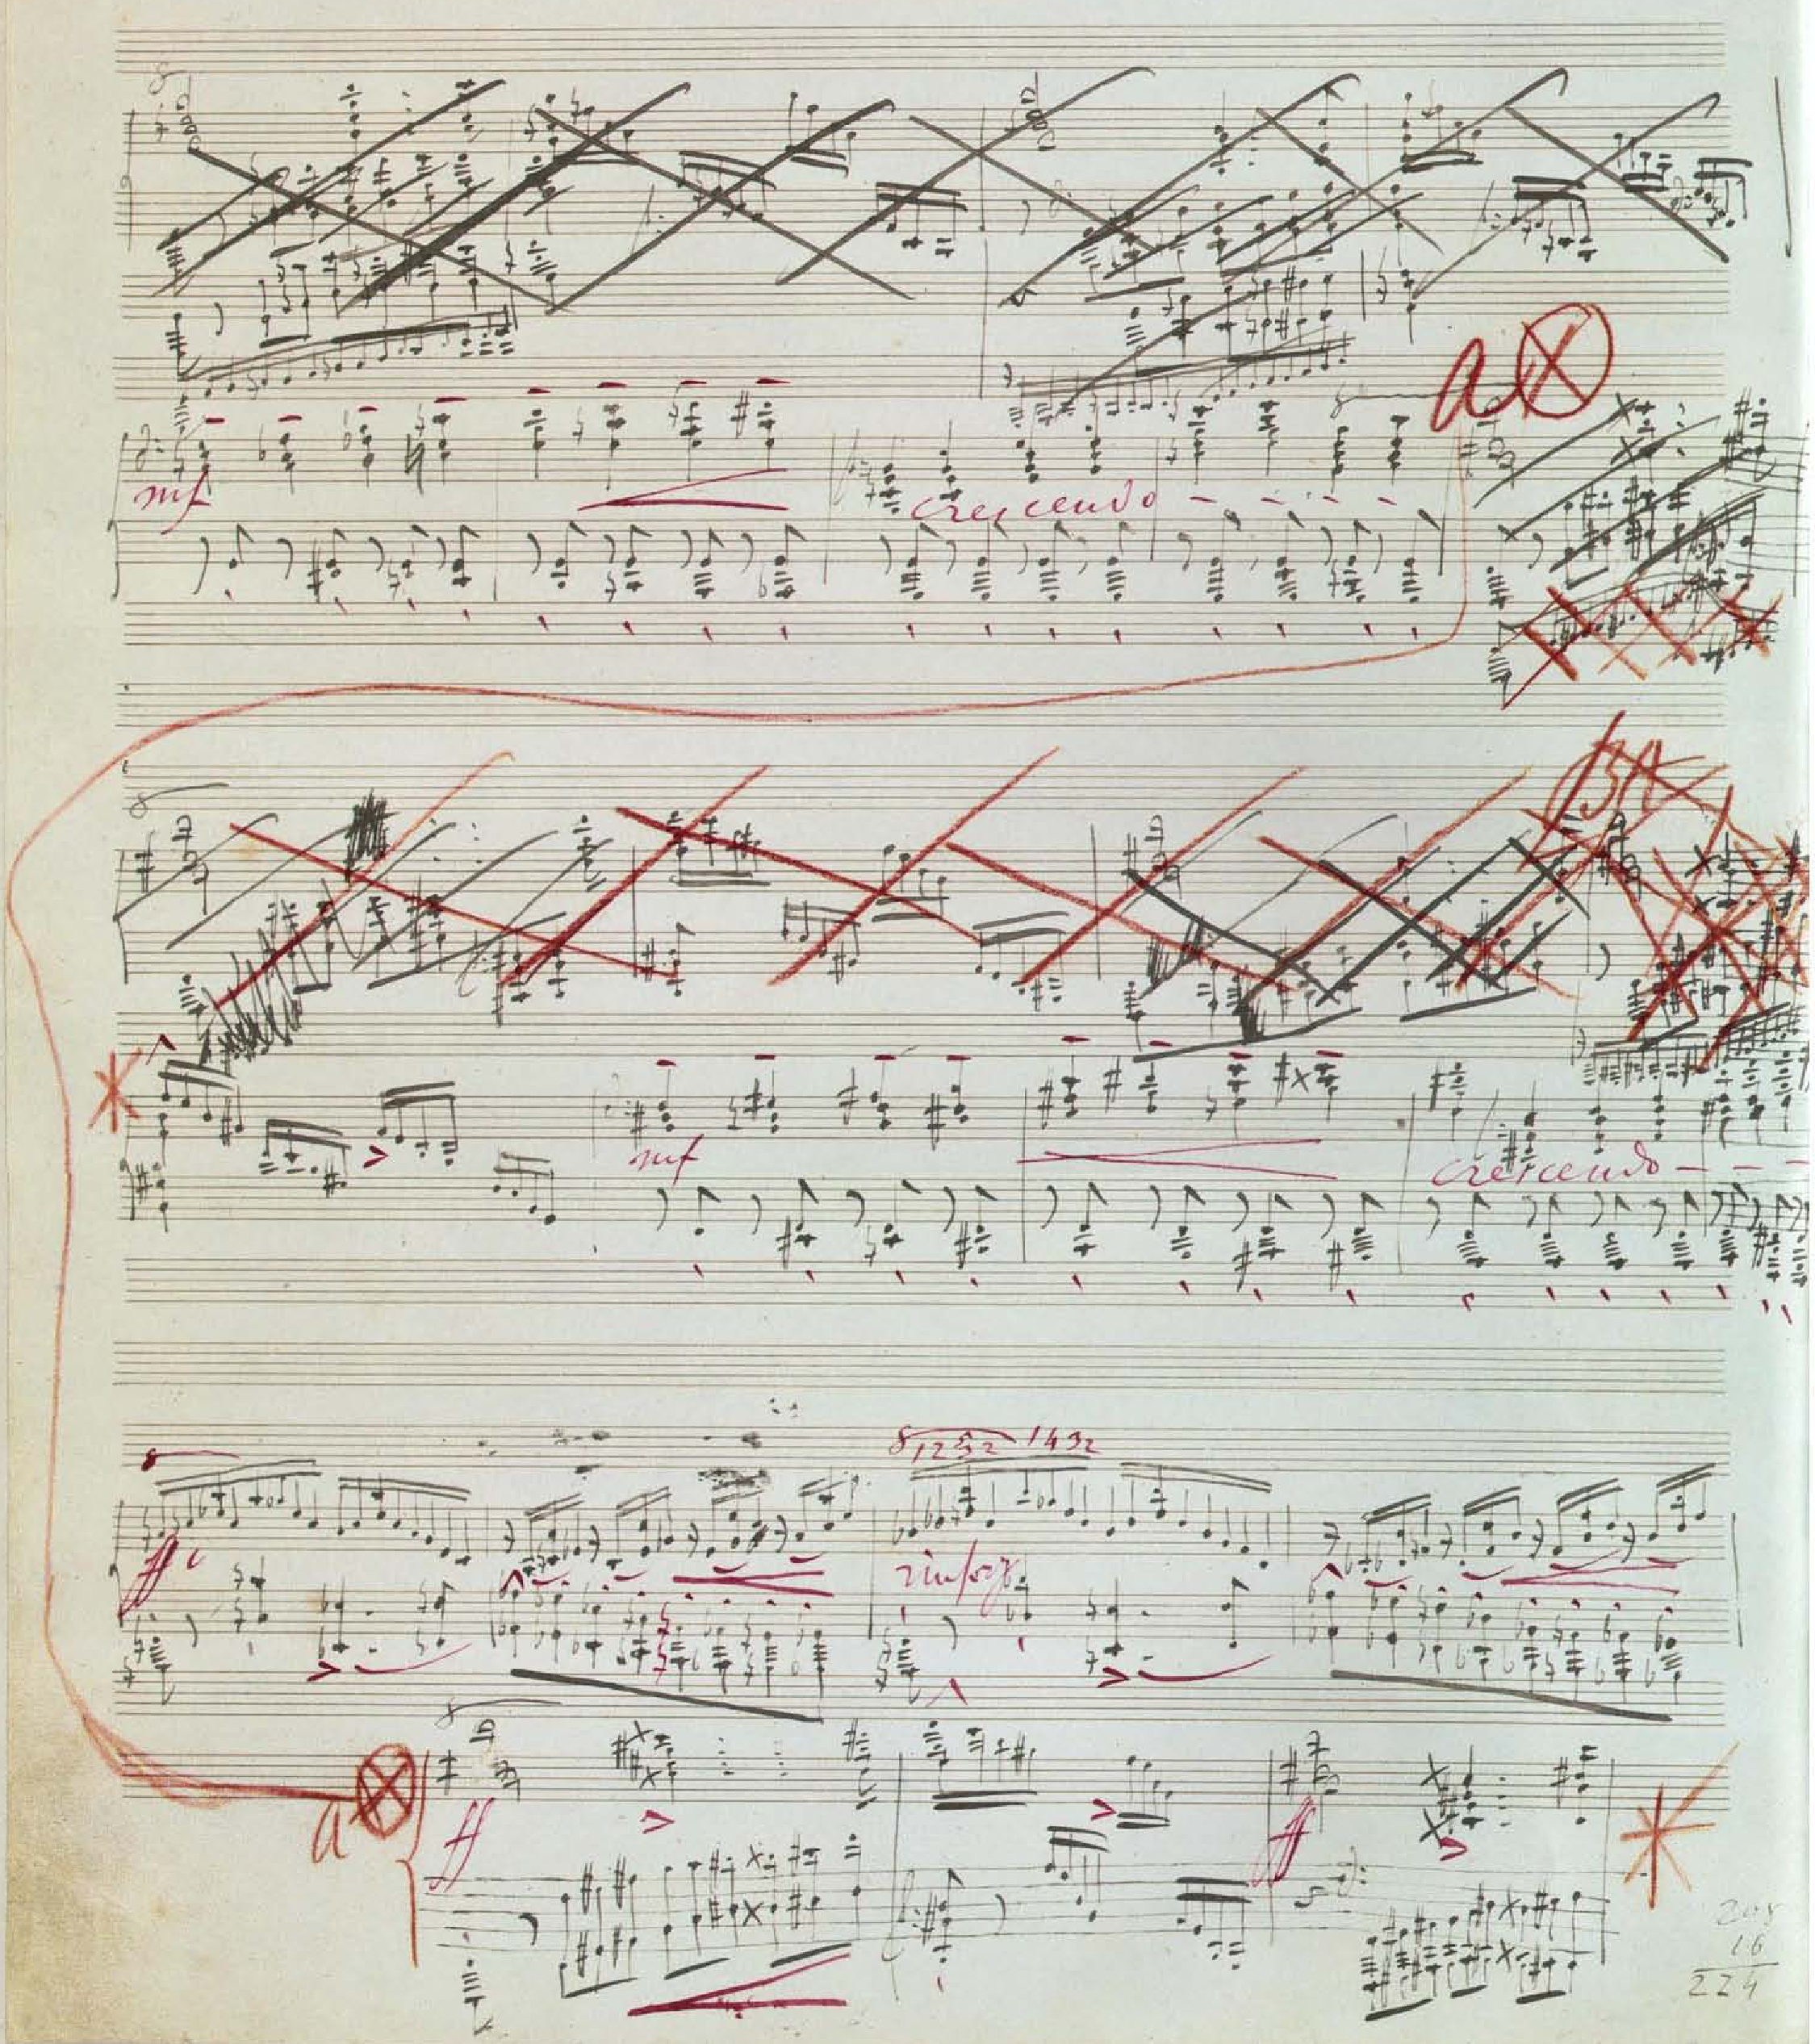 8
a
8
mf
crescendo - - - -
8
mf
crescendo - - -
8
8 1252 1432
ff
rinforz.
8
a
ff
ff
208
16
224